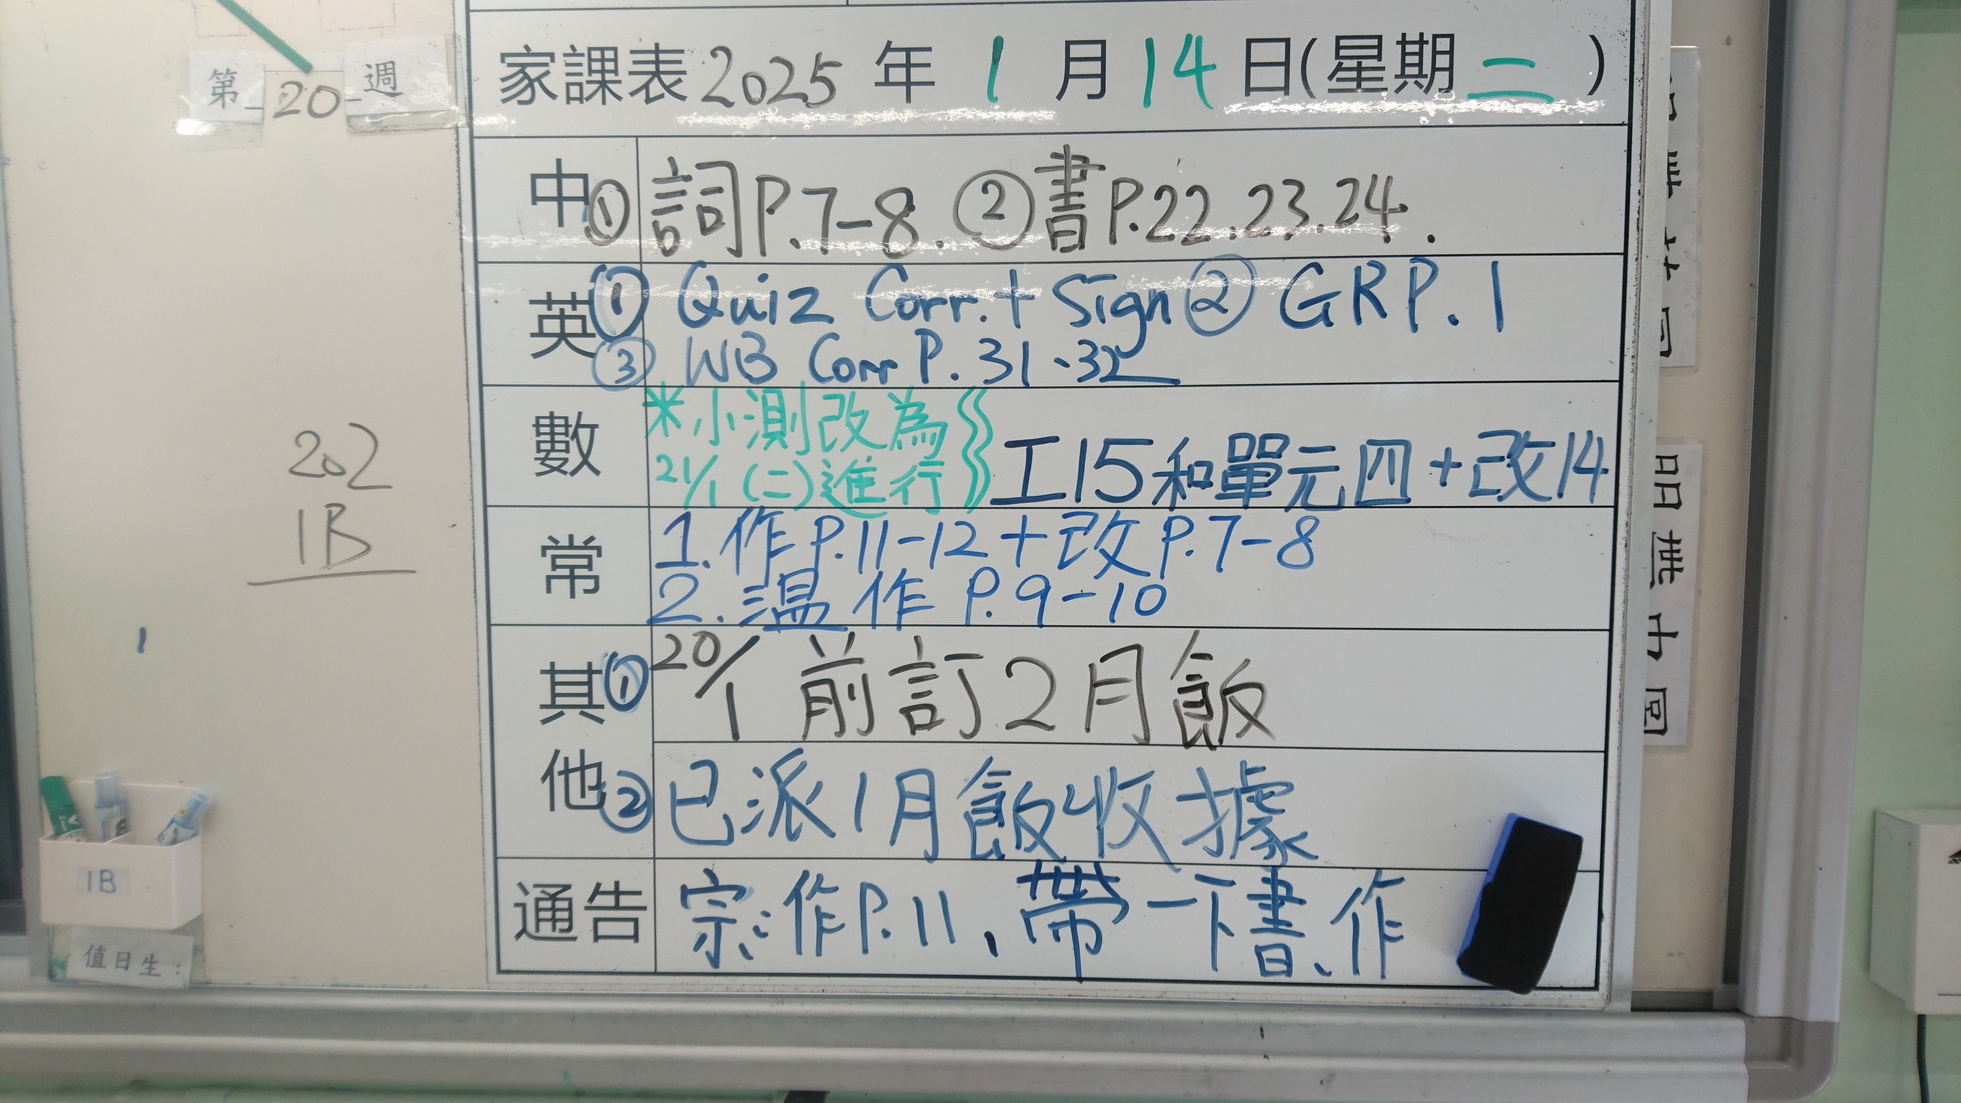 第 20 週
家課表 2025 年 1 月 14 日(星期 二 )
中 ① 詞P.7-8. ②書P.22.23.24.
英 ① Quiz Corr.+ Sign ② GR P.1
③ WB Corr P.31、32
數 *小測改為
21/1 (二)進行 工15和單元四+改14
常 1.作P.11-12+改P.7-8
2.溫作P.9-10
其他 ① 20/1前訂2月飯
② 已派1月飯收據
通告 宗:作P.11、帶一下書、作
202
1B
1B
值日生: